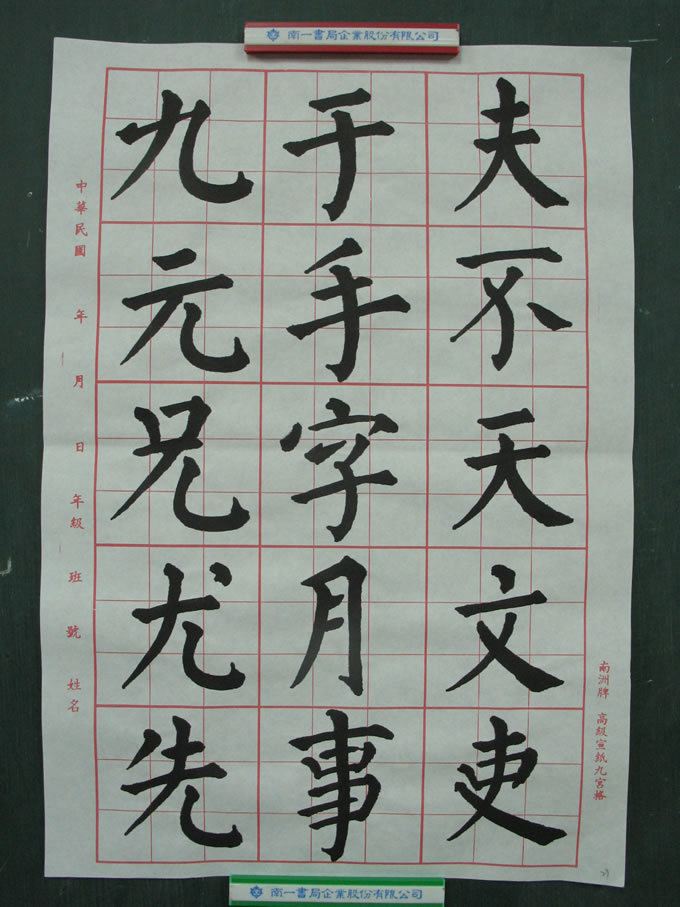 南一書局企業股份有限公司
夫不天文吏
于手字月事
九元兄尤先
中華民國 年 月 日 年級 班 號 姓名
南洲牌 高級宣紙九宮格
南一書局企業股份有限公司